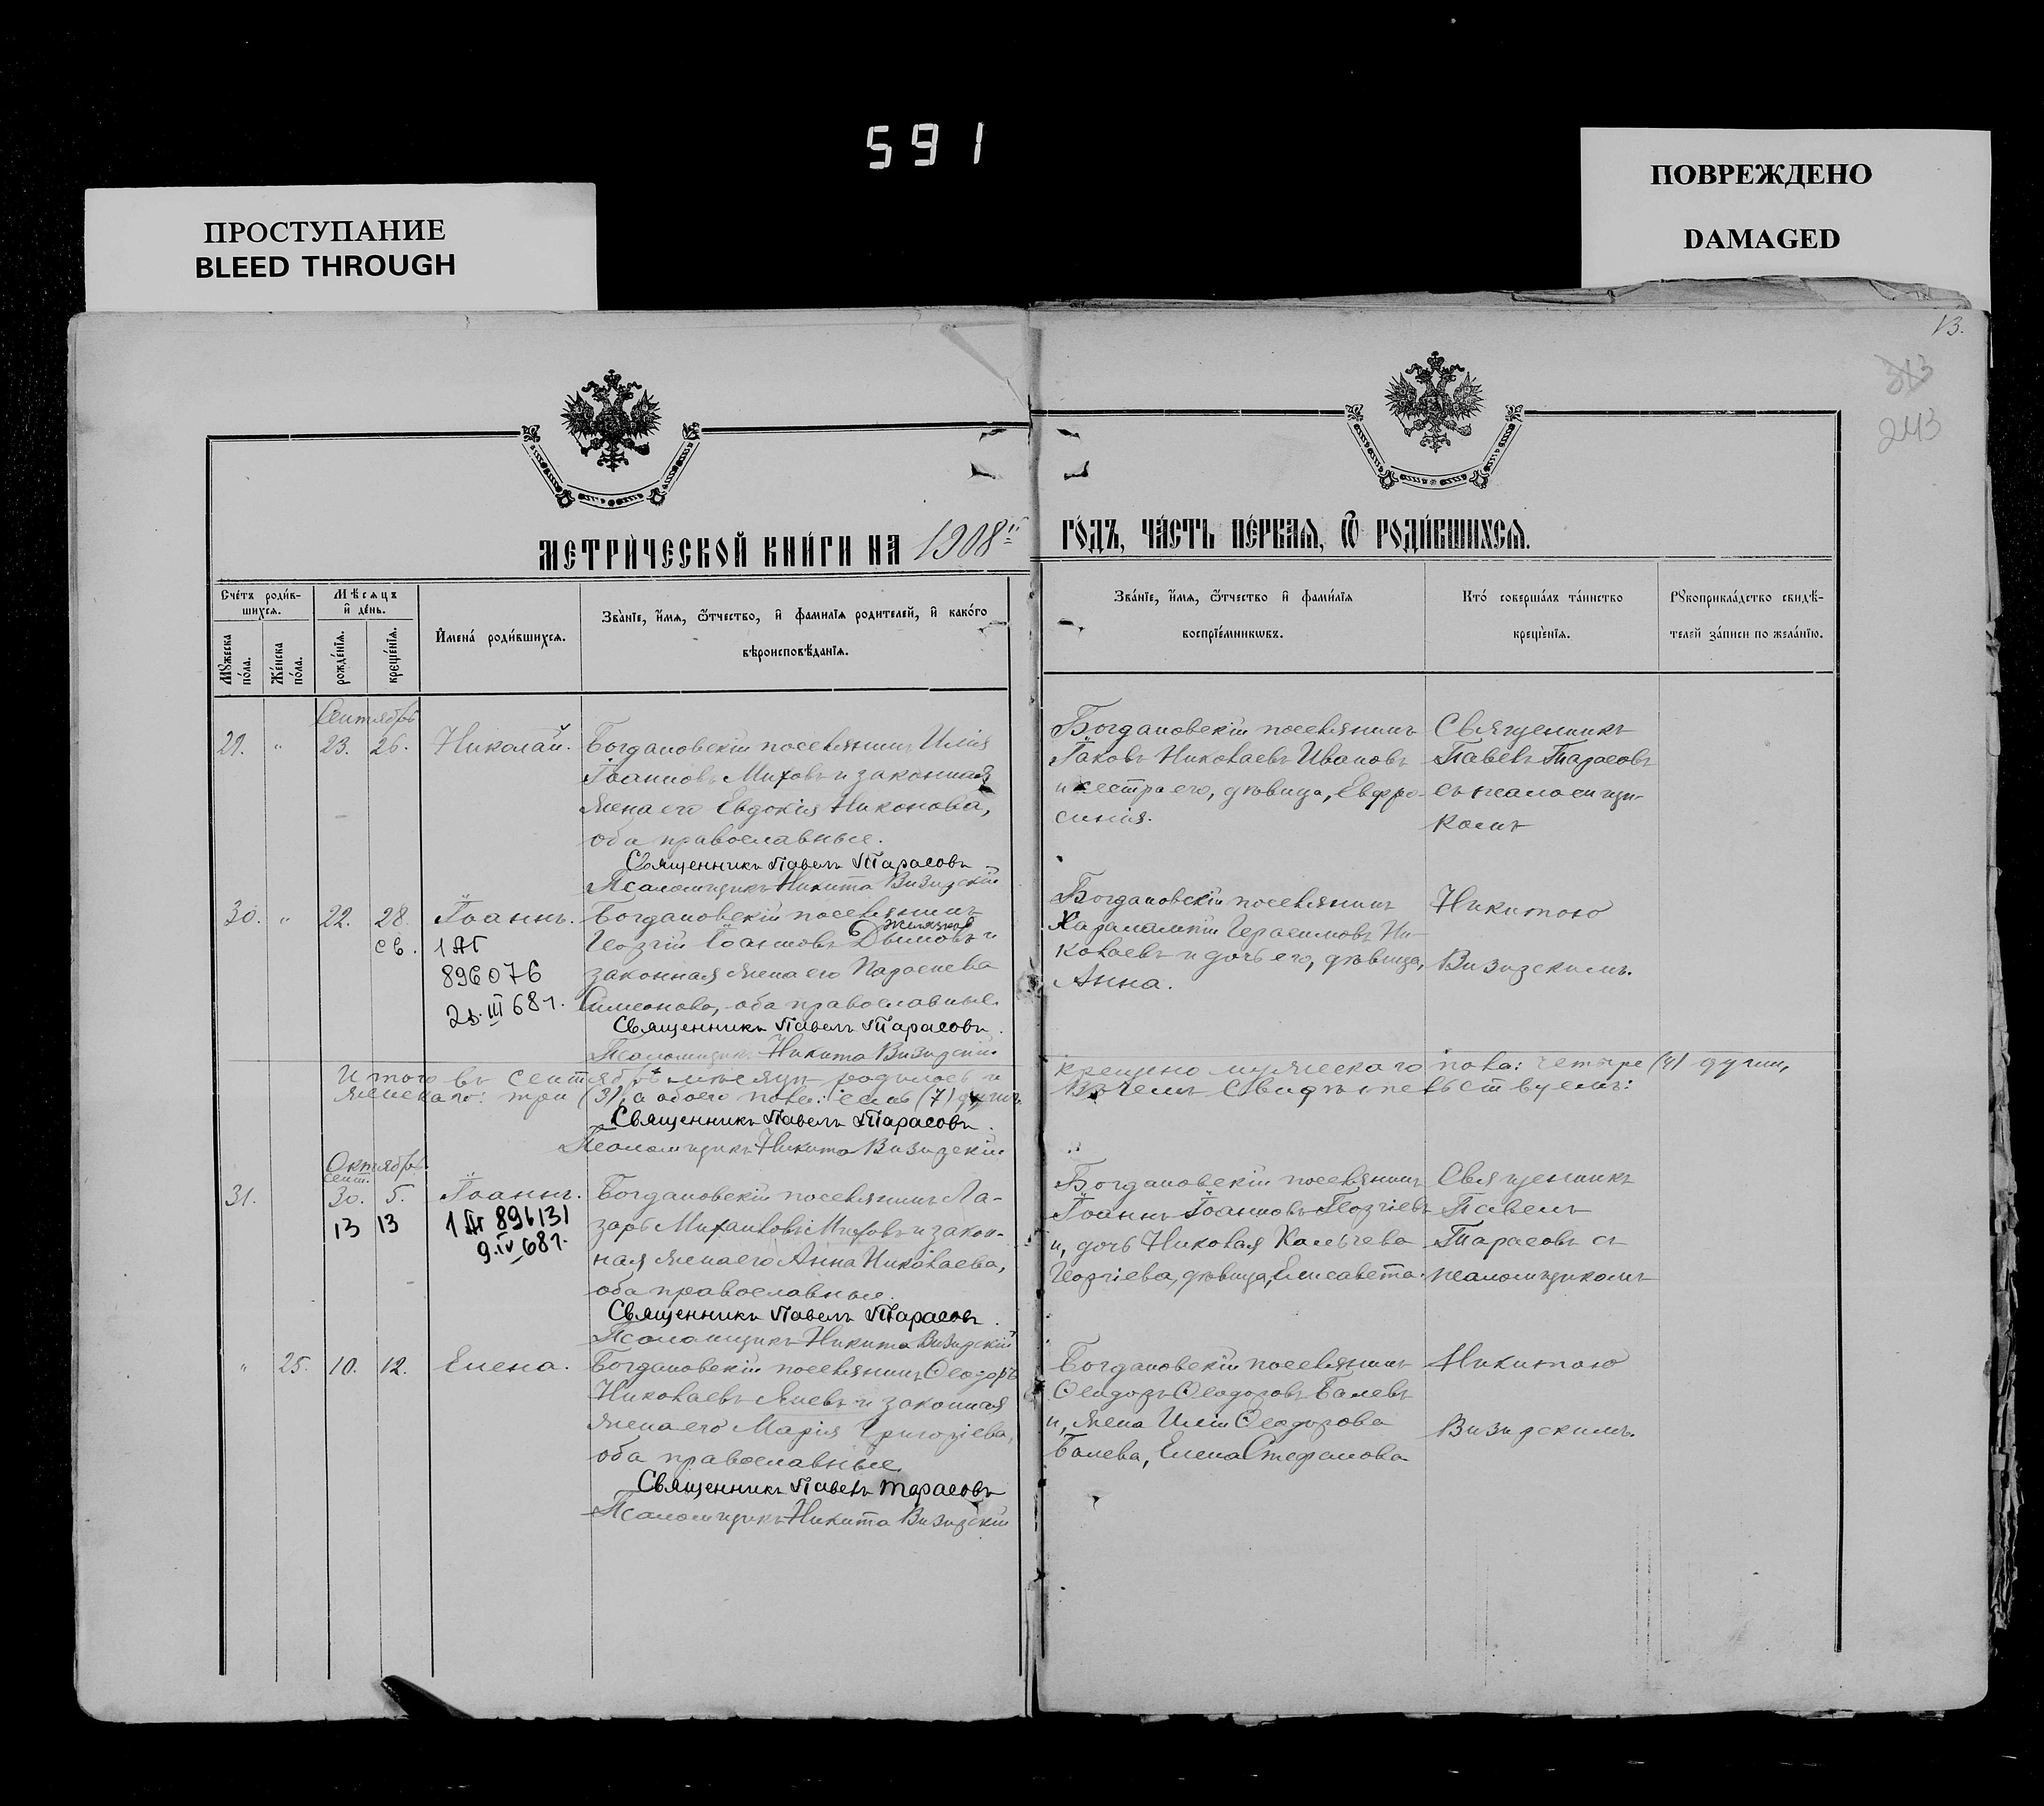 591
ПРОСТУПАНИЕ
BLEED THROUGH
ПОВРЕЖДЕНО
DAMAGED
13.
313
243
МЕТРИ́ЧЕСКОЙ КНИ́ГИ НА 1908й
ГО́ДЪ, ЧА́СТЬ ПЕ́РВАѦ, Ѿ РОДИ́ВШИХСѦ.
Сче́тъ роди́в-
шихсѧ.
Мѣ́сѧцъ
и҆ де́нь.
Мꙋ́жеска по́ла.
Же́нска по́ла.
рожде́нїѧ.
креще́нїѧ.
И҆мена̀ роди́вшихсѧ.
Зва́нїе, и҆́мѧ, ѻ҆́тчество, и҆ фами́лїѧ роди́телей, и҆ како́гѡ
вѣроисповѣ́данїѧ.
Зва́нїе, и҆́мѧ, ѻ҆́тчество и҆ фами́лїѧ
воспрїе́мникѡвъ.
Кто́ соверша́лъ та́инство
креще́нїѧ.
Рꙋкоприкла́дство свидѣ́-
телей за́писи по жела́нїю.
Сентябрь
29. " 23. 26. Николай. Богдановскій поселянинъ Илія
Іоанновъ Митовъ и законная
жена его Евдокія Никонова,
оба православные.
Священникъ Павелъ Тарасовъ
Псаломщикъ Никита Визирскій
Богдановскій поселянинъ
Іаковъ Николаевъ Ивановъ
и сестра его, дѣвица, Евфро-
синія.
Священникъ
Павелъ Тарасовъ
съ псаломщи-
комъ
30. " 22. 28. Іоаннъ. Богдановскій поселянинъ
св. Георгій Іоанновъ Дымовъ и
законная жена его Параскева
Симеонова, оба православные.
1 АГ
896076
23.III 68 г.
Священникъ Павелъ Тарасовъ.
Псаломщикъ Никита Визирскій
Богдановскій поселянинъ
Харалампій Герасимовъ Ни-
колаевъ и дочь его, дѣвица,
Анна.
Никитою
Визирскимъ.
Итого въ Сентябрѣ мѣсяцѣ родилось и
крещено мужескаго пола: четыре (4) души,
женскаго: три (3), а обоего пола: семь (7) душъ.
Въ чемъ свидѣтельствуемъ:
Священникъ Павелъ Тарасовъ.
Псаломщикъ Никита Визирскій
Октябрь
сент.
31. 30. 5. Іоаннъ. Богдановскій поселянинъ Ла-
13 13
зарь Михаиловъ Митовъ и закон-
ная жена его Анна Николаева,
оба православные.
896131
9.IV 68 г.
Священникъ Павелъ Тарасовъ.
Псаломщикъ Никита Визирскій
Богдановскій поселянинъ
Іоаннъ Іоанновъ Георгіевъ
и, дочь Николая Калчева
Георгіева, дѣвица, Елисавета.
Священникъ
Павелъ
Тарасовъ съ
псаломщикомъ
" 25. 10. 12. Елена. Богдановскій поселянинъ Ѳеодоръ
Николаевъ Яневъ и законная
жена его Марія Григоріева,
оба православные.
Священникъ Павелъ Тарасовъ
Псаломщикъ Никита Визирскій
Богдановскій поселянинъ
Ѳеодоръ Ѳеодоровъ Балевъ
и, жена Иліи Ѳеодорова
Балева, Елена Стефанова
Никитою
Визирскимъ.